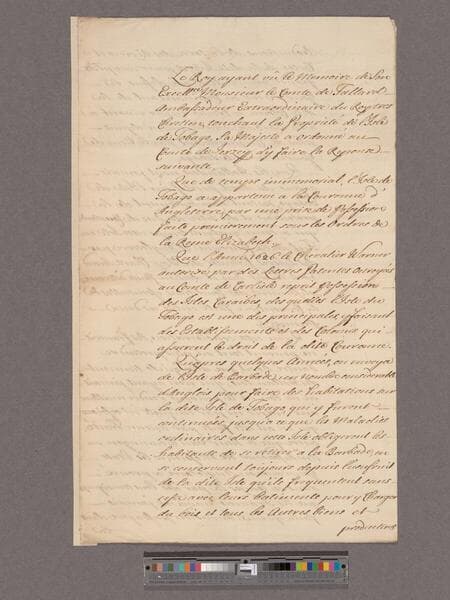 Le Roy ayant vû le Memoire de Son
Excell.ce Monsieur le Comte de Tallard
Ambassadeur Extraordinaire du Roy tres
Chretien, touchant la Proprieté de l'Isle
de Tobago, Sa Majesté a ordonné au
Comte de Jersey d'y faire la Reponse
suivante
Que de temps immemorial, l'Isle de
Tobago a appartenu a la Couronne d'
Angleterre, par une prise de Possession
faite premierement sous les Ordres de
la Reyne Elizabeth,
Que l'Anné 1626 le Chevalier Warner
autorizé par des Lettres Patentes octroyés
au Comte de Carlisle reprit Possession
des Isles Caraibes, des quelles l'Isle de
Tobago est une des principales, y faisant
des Etablissements et des Colonies qui
assurent le droit de la dite Couronne
Qu'apres quelques Années, on envoya
de l'Isle de Barbade, un Nombre considerable
d'Anglois pour faire des habitations sur
la dite Isle de Tobago, qui y furent
continuées, jusqu'a ce que les Maladies
ordinaires dans cette Isle obligerent les
habitants de se retirer a la Barbade, en
se conservant toujours depuis l'usufruit
de la dite Isle qu'ils frequentent sans
cesse avec leurs batiments pour y Charger
du bois et tous les Autres biens et
productions